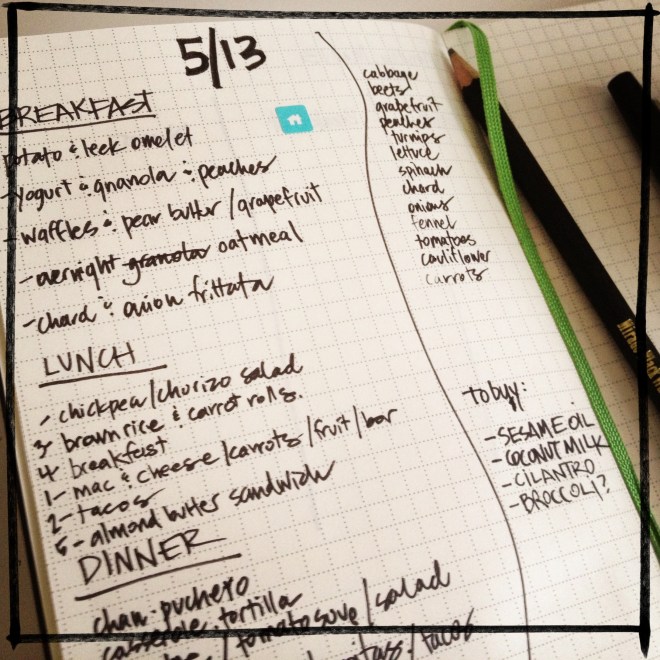 5/13
BREAKFAST
potato & leek omelet
- yogurt & granola & peaches
- waffles & pear butter / grapefruit
- overnight granola oatmeal
- chard & onion frittata
LUNCH
- chickpea/chorizo salad
3- brown rice & carrot rolls.
4- breakfast
1- mac & cheese / carrots / fruit / bar
2- tacos
5- almond butter sandwich
DINNER
puchero
casserole tortilla
/ tomato / salad
/ tacos
cabbage
beets
grapefruit
peaches
turnips
lettuce
spinach
chard
onions
fennel
tomatoes
cauliflower
carrots
to buy:
- SESAME OIL
- COCONUT MILK
- CILANTRO
- BROCCOLI?